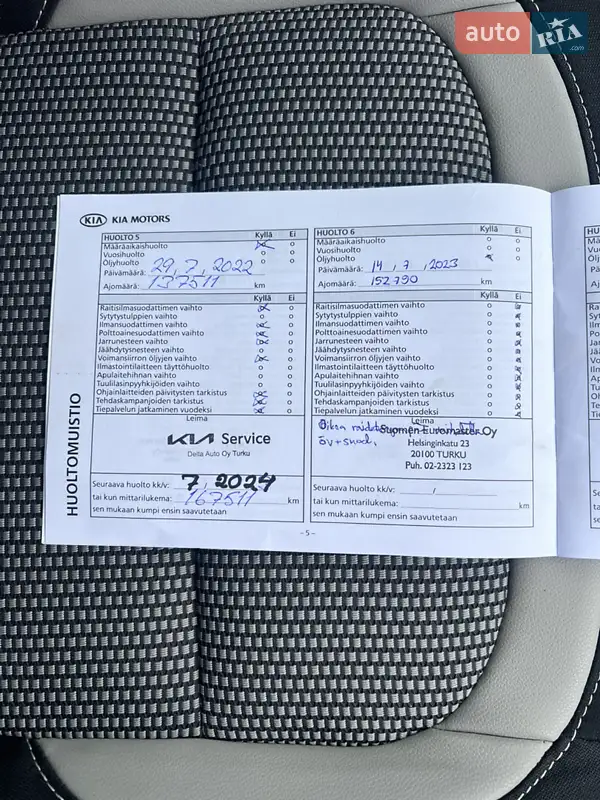 auto RIA .com
KIA KIA MOTORS
HUOLTO 5 Kyllä Ei
Määräaikaishuolto o
Vuosihuolto o o
Öljyhuolto o o
Päivämäärä: 29, 7, 2022
Ajomäärä: 137511 km
Kyllä Ei
Raitisilmasuodattimen vaihto o
Sytytystulppien vaihto o o
Ilmansuodattimen vaihto o
Polttoainesuodattimen vaihto o
Jarrunesteen vaihto o
Jäähdytysnesteen vaihto o o
Voimansiirron öljyjen vaihto o
Ilmastointilaitteen täyttöhuolto o o
Apulaitehihnan vaihto o o
Tuulilasinpyyhkijöiden vaihto o o
Ohjainlaitteiden päivitysten tarkistus o
Tehdaskampanjoiden tarkistus o
Tiepalvelun jatkaminen vuodeksi o
Leima
KIA Service
Delta Auto Oy Turku
Seuraava huolto kk/v: 7, 2024
tai kun mittarilukema: 167511 km
sen mukaan kumpi ensin saavutetaan
HUOLTO 6 Kyllä Ei
Määräaikaishuolto o o
Vuosihuolto o o
Öljyhuolto o
Päivämäärä: 14, 7, 2023
Ajomäärä: 152790 km
Kyllä Ei
Raitisilmasuodattimen vaihto o
Sytytystulppien vaihto o
Ilmansuodattimen vaihto o
Polttoainesuodattimen vaihto o
Jarrunesteen vaihto o
Jäähdytysnesteen vaihto o
Voimansiirron öljyjen vaihto o
Ilmastointilaitteen täyttöhuolto o
Apulaitehihnan vaihto o
Tuulilasinpyyhkijöiden vaihto o
Ohjainlaitteiden päivitysten tarkistus o
Tehdaskampanjoiden tarkistus o
Tiepalvelun jatkaminen vuodeksi o
Leima
Suomen Euromaster Oy
Helsinginkatu 23
20100 TURKU
Puh. 02-2323 123
Seuraava huolto kk/v: /
tai kun mittarilukema: km
sen mukaan kumpi ensin saavutetaan
HUOLTOMUISTIO
-5-